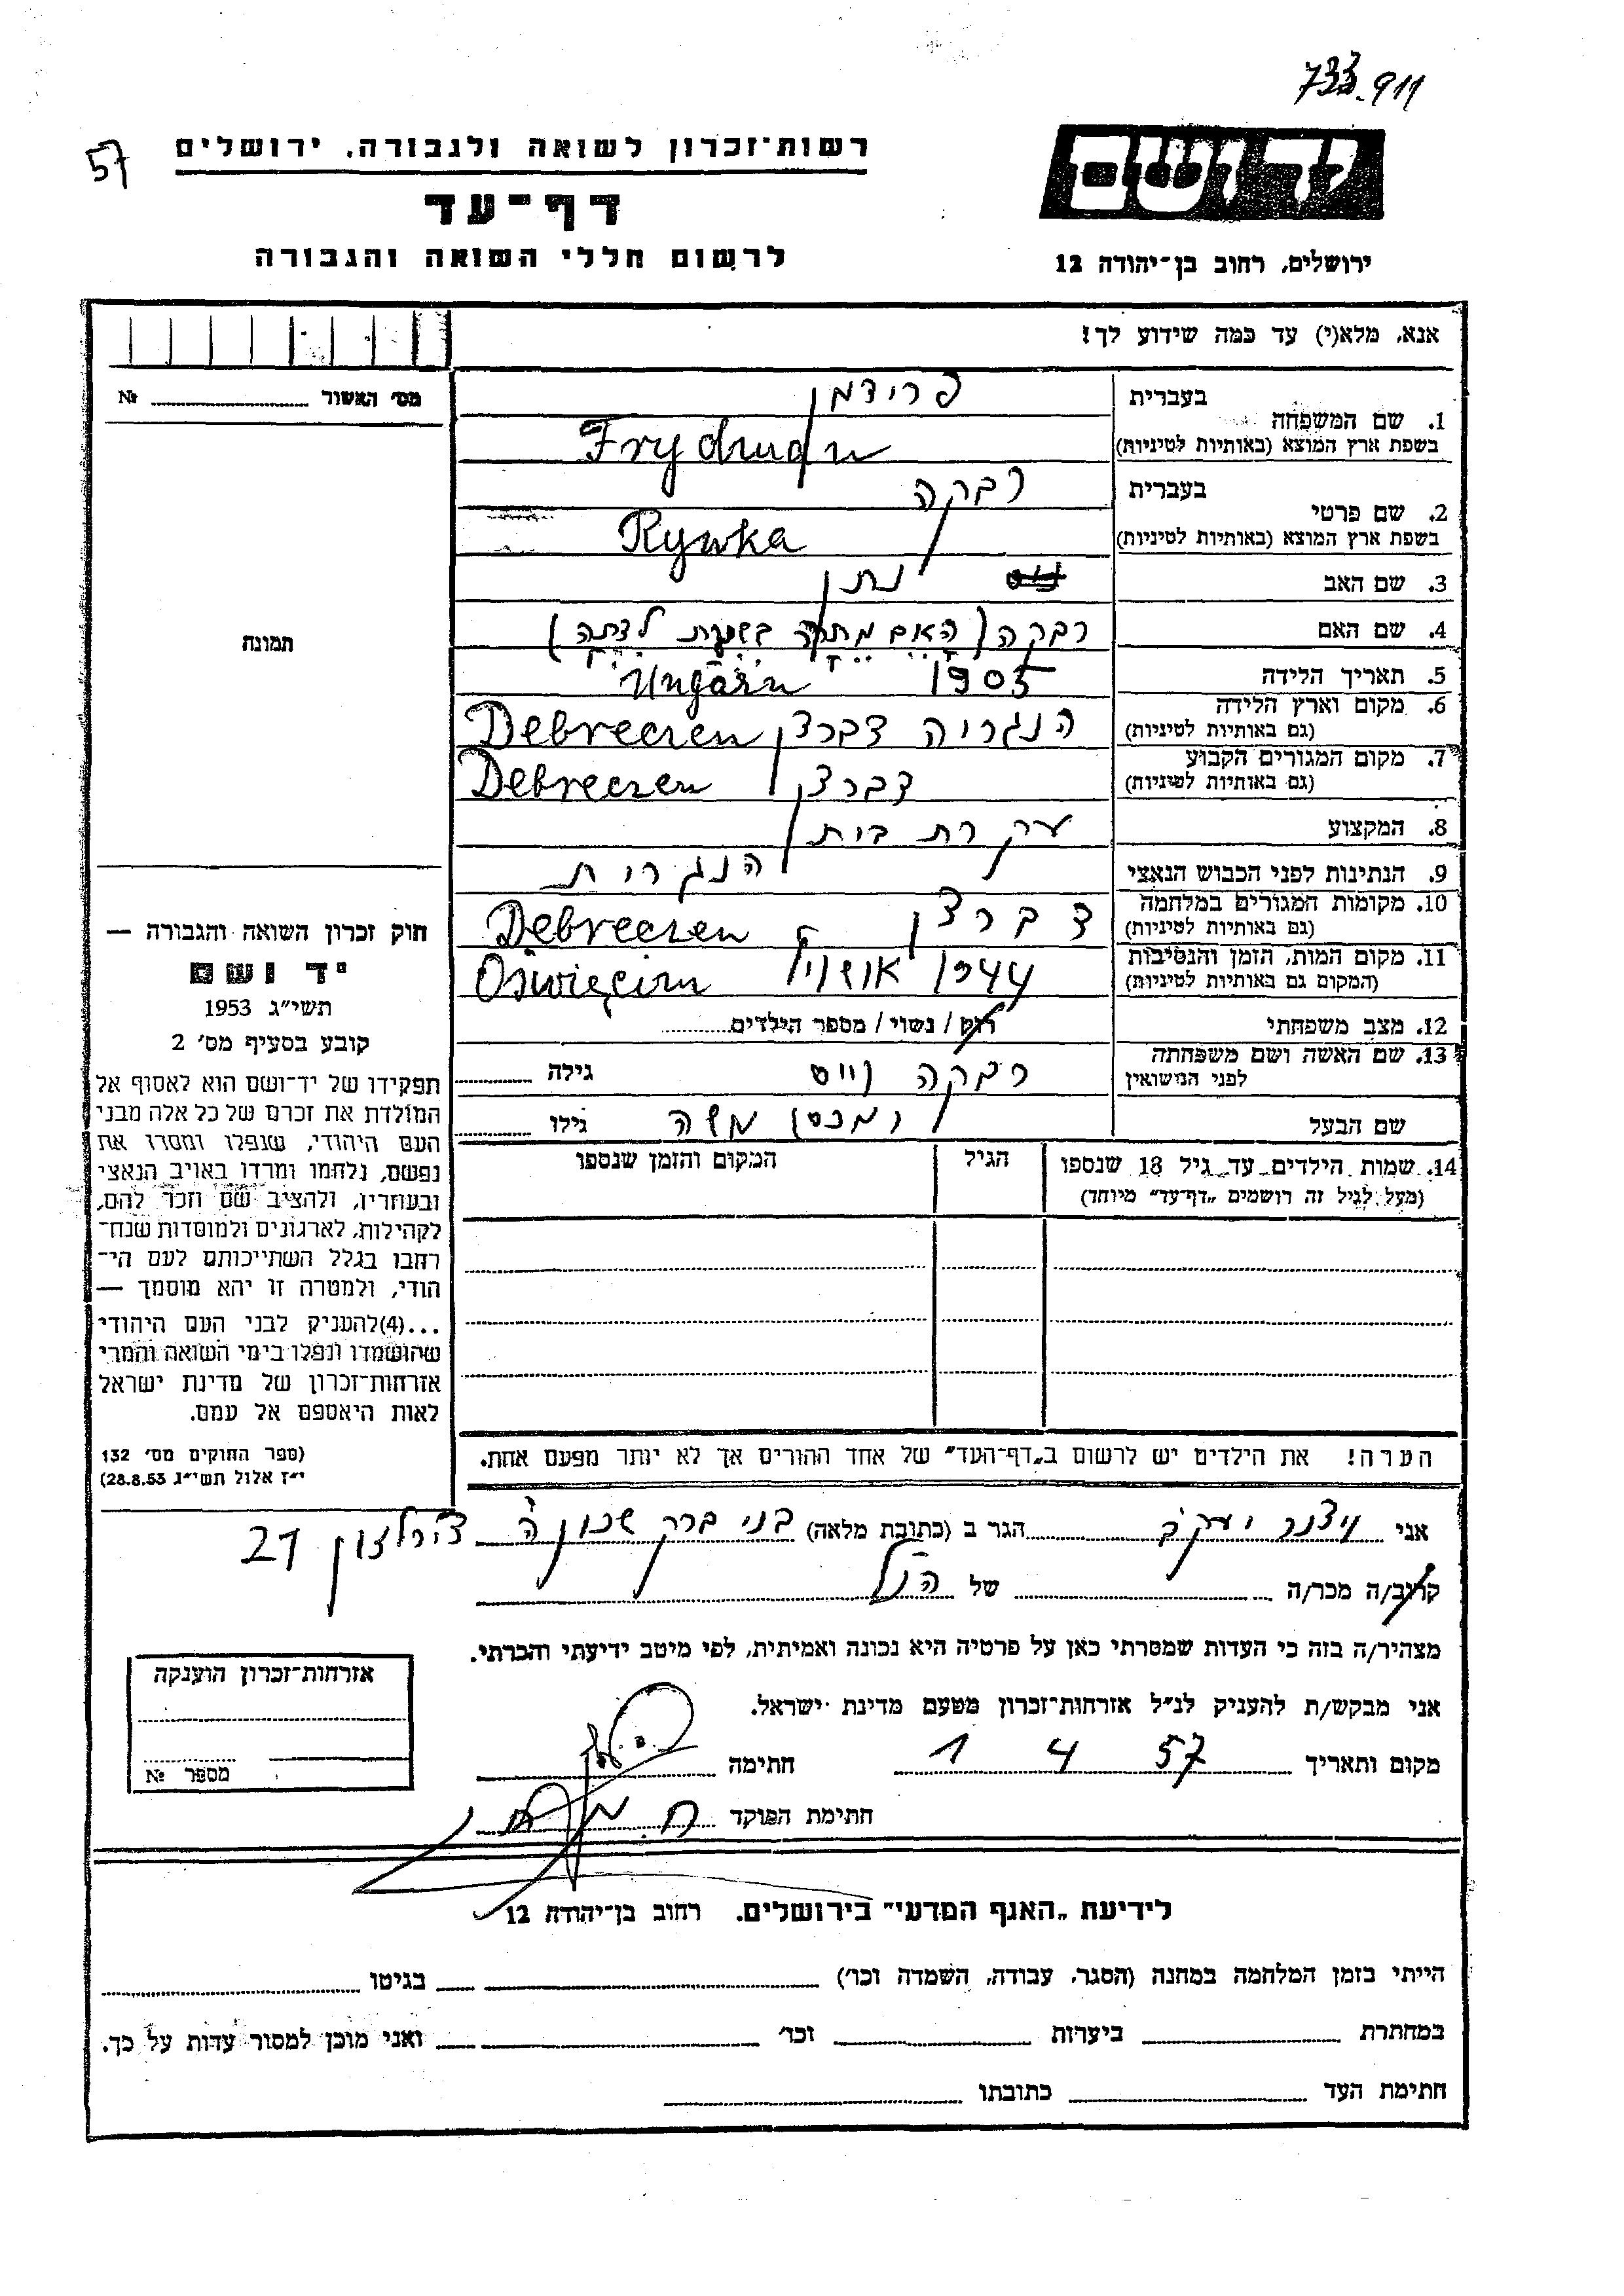 733.911
57
רשות־זכרון לשואה ולגבורה, ירושלים
דף־עד
לרשום חללי השואה והגבורה
יד ושם
ירושלים, רחוב בן־יהודה 12
אנא, מלא(י) עד כמה שידוע לך!
מס׳ האשור № 
1. שם המשפחה
בעברית פרידמן
בשפת ארץ המוצא (באותיות לטיניות) Frydman
2. שם פרטי
בעברית רבקה
בשפת ארץ המוצא (באותיות לטיניות) Rywka
3. שם האב נתן
4. שם האם רבקה (האם מתה בשעת לידתה)
5. תאריך הלידה 1905
6. מקום וארץ הלידה Ungarn
(גם באותיות לטיניות) הנגריה דברצן Debreczen
7. מקום המגורים הקבוע
(גם באותיות לטיניות) דברצן Debreczen
8. המקצוע עקרת בית
9. הנתינות לפני הכבוש הנאצי הנגרית
10. מקומות המגורים במלחמה
(גם באותיות לטיניות) דברצן Debreczen
11. מקום המות, הזמן והנסיבות
(המקום גם באותיות לטיניות) 1944 Oświęcim
12. מצב משפחתי רוק / נשוי / מספר הילדים
13. שם האשה ושם משפחתה
לפני הנישואין רבקה וייס גילה
שם הבעל משה גילו
14. שמות הילדים עד גיל 18 שנספו
(מעל לגיל זה רושמים „דף־עד״ מיוחד)
הגיל
המקום והזמן שנספו
תמונה
חוק זכרון השואה והגבורה —
יד ושם
תשי״ג 1953
קובע בסעיף מס׳ 2
תפקידו של יד־ושם הוא לאסוף אל
המולדת את זכרם של כל אלה מבני
העם היהודי, שנפלו ומסרו את
נפשם, נלחמו ומרדו באויב הנאצי
ובעוזריו, ולהציב שם וזכר להם,
לקהילות, לארגונים ולמוסדות שנח־
רחבו בגלל השתייכותם לעם הי־
הודי, ולמטרה זו יהא מוסמך —
...(4)להעניק לבני העם היהודי
שהושמדו ונפלו בימי השואה והמרי
אזרחות־זכרון של מדינת ישראל
לאות היאספם אל עמם.
(ספר החוקים מס׳ 132
י״ז אלול תשי״ג 28.8.53)
הערה! את הילדים יש לרשום ב„דף־העד״ של אחד ההורים אך לא יותר מפעם אחת.
אני ויצנר יעקב הגר ב (כתובת מלאה) בני ברק שכון ה׳ 27
קרוב/ה מכר/ה של הנ״ל
מצהיר/ה בזה כי העדות שמסרתי כאן על פרטיה היא נכונה ואמיתית, לפי מיטב ידיעתי והכרתי.
אני מבקש/ת להעניק לנ״ל אזרחות־זכרון מטעם מדינת ישראל.
מקום ותאריך 57 4 1 חתימה
חתימת הפוקד
אזרחות־זכרון הוענקה
מספר №
לידיעת „האגף המדעי״ בירושלים. רחוב בן־יהודה 12
הייתי בזמן המלחמה במחנה (הסגר, עבודה, השמדה וכו׳) בגיטו
במחתרת ביערות וכו׳ ואני מוכן למסור עדות על כך.
חתימת העד כתובתו